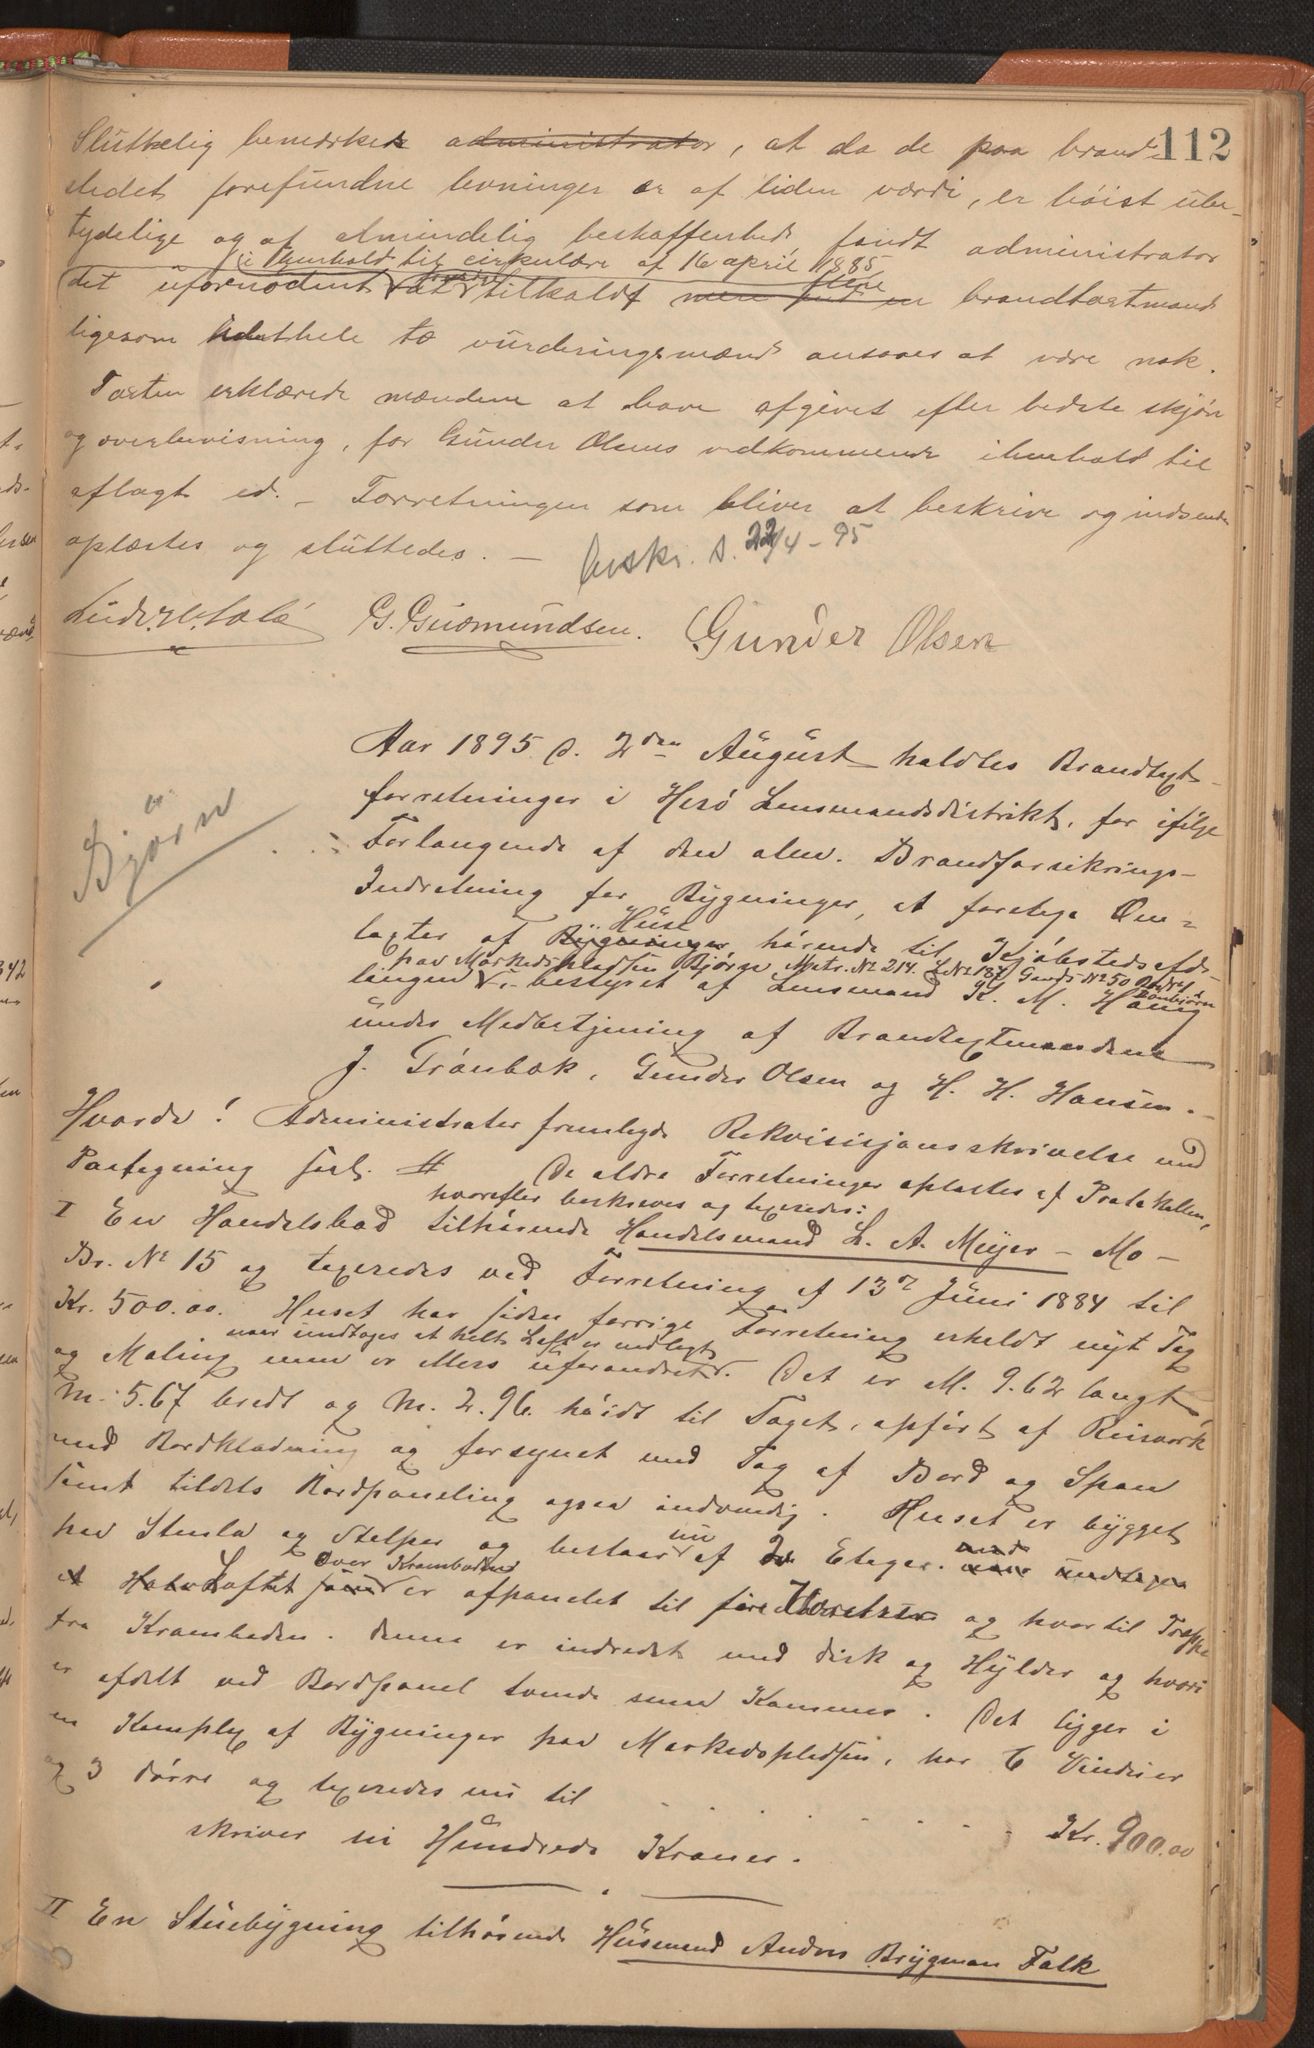 112
Sluttelig bemerkes administrator, at da de paa brand-
stedet forefundne levninger er af liden værdi, er höist ube-
tydelige og af almindelig beskaffenhed, fandt administrator
i henhold til cirkulære af 16 april 1885
det ufornødent at tilkalde flere mere end en brandtaxtmand
ligesom udethele to vurderingsmænd ansaaes at være nok.
Taxten erklærede mændene at have afgivet efter bedste skjøn
og overbevisning, for Gunder Olsens vedkommende ihenhold til
aflagt ed. - Forretningen som bliver at beskrive og indsende
oplæstes og sluttedes. -
Avskr. d. 22/4 - 95
G. Gudmundsen. Gunder Olsen
Björn
Aar 1895 d. 2den August holdtes Brandtaxt-
forretninger i Herö Lensmandsdistrikt, for ifölge
Forlangende af den alm. Brandforsikrings-
Indretning for Bygninger, at foretage Om-
taxter af Bygninger Huse hörende til Kjöbstedsafde-
paa Markedspladsen Björn Matr. No 214. L No 187 Gaards No 50
lingen - bestyret af Lensmand K. M. Haug
under Medbetjening af Brandtaxtmændene
J. Grönbæk, Gunder Olsen og H. H. Hansen. -
Hvorda! Administrator fremlagde Rekvisisjonsskrivelse med
Paategning . # De ældre Forretninger oplæstes af Protokollen,
hvorefter beskreves og taxeredes:
I En Handelsbod tilhörende Handelsmand L. A. Meyer - Mo -
Br. No 15 og taxeredes ved Forretning af 13de Juni 1884 til
Kr. 500.00. Huset har siden forrige Forretning erholdt nyt Tag
naar undtages at helt Loft er indlagt
og Maling men er ellers uforandret. Det er M. 9.62 langt
M. 5.67 bredt og M. 2.96. höidt til Taget, opfört af Reisverk
med Bordklædning og forsynet med Tag af Bord og Spon
samt tildels Bordpaneling ogsaa indvendig. Huset er bygget
paa Stenla og Stolper og bestaar nu af 2 Etager. naar undtages
over Kramboden
et Halv Loftet er afpanelet til fire Værelser og hvortil Trappe
fra Kramboden. Denne er indredet med Disk og Hylder og hvori
er afdelt ved Bordpanel tvende smaa Kammer. Det ligger i
en Kompleg af Bygninger paa Markedspladsen, har 6 Vinduer
og 3 Dörre og taxeredes nu til - - - - - - Kr. 900.00
skriver ni Hundrede Kroner.
II En Stuebygning tilhörende Husmand Anders Brygman Falk